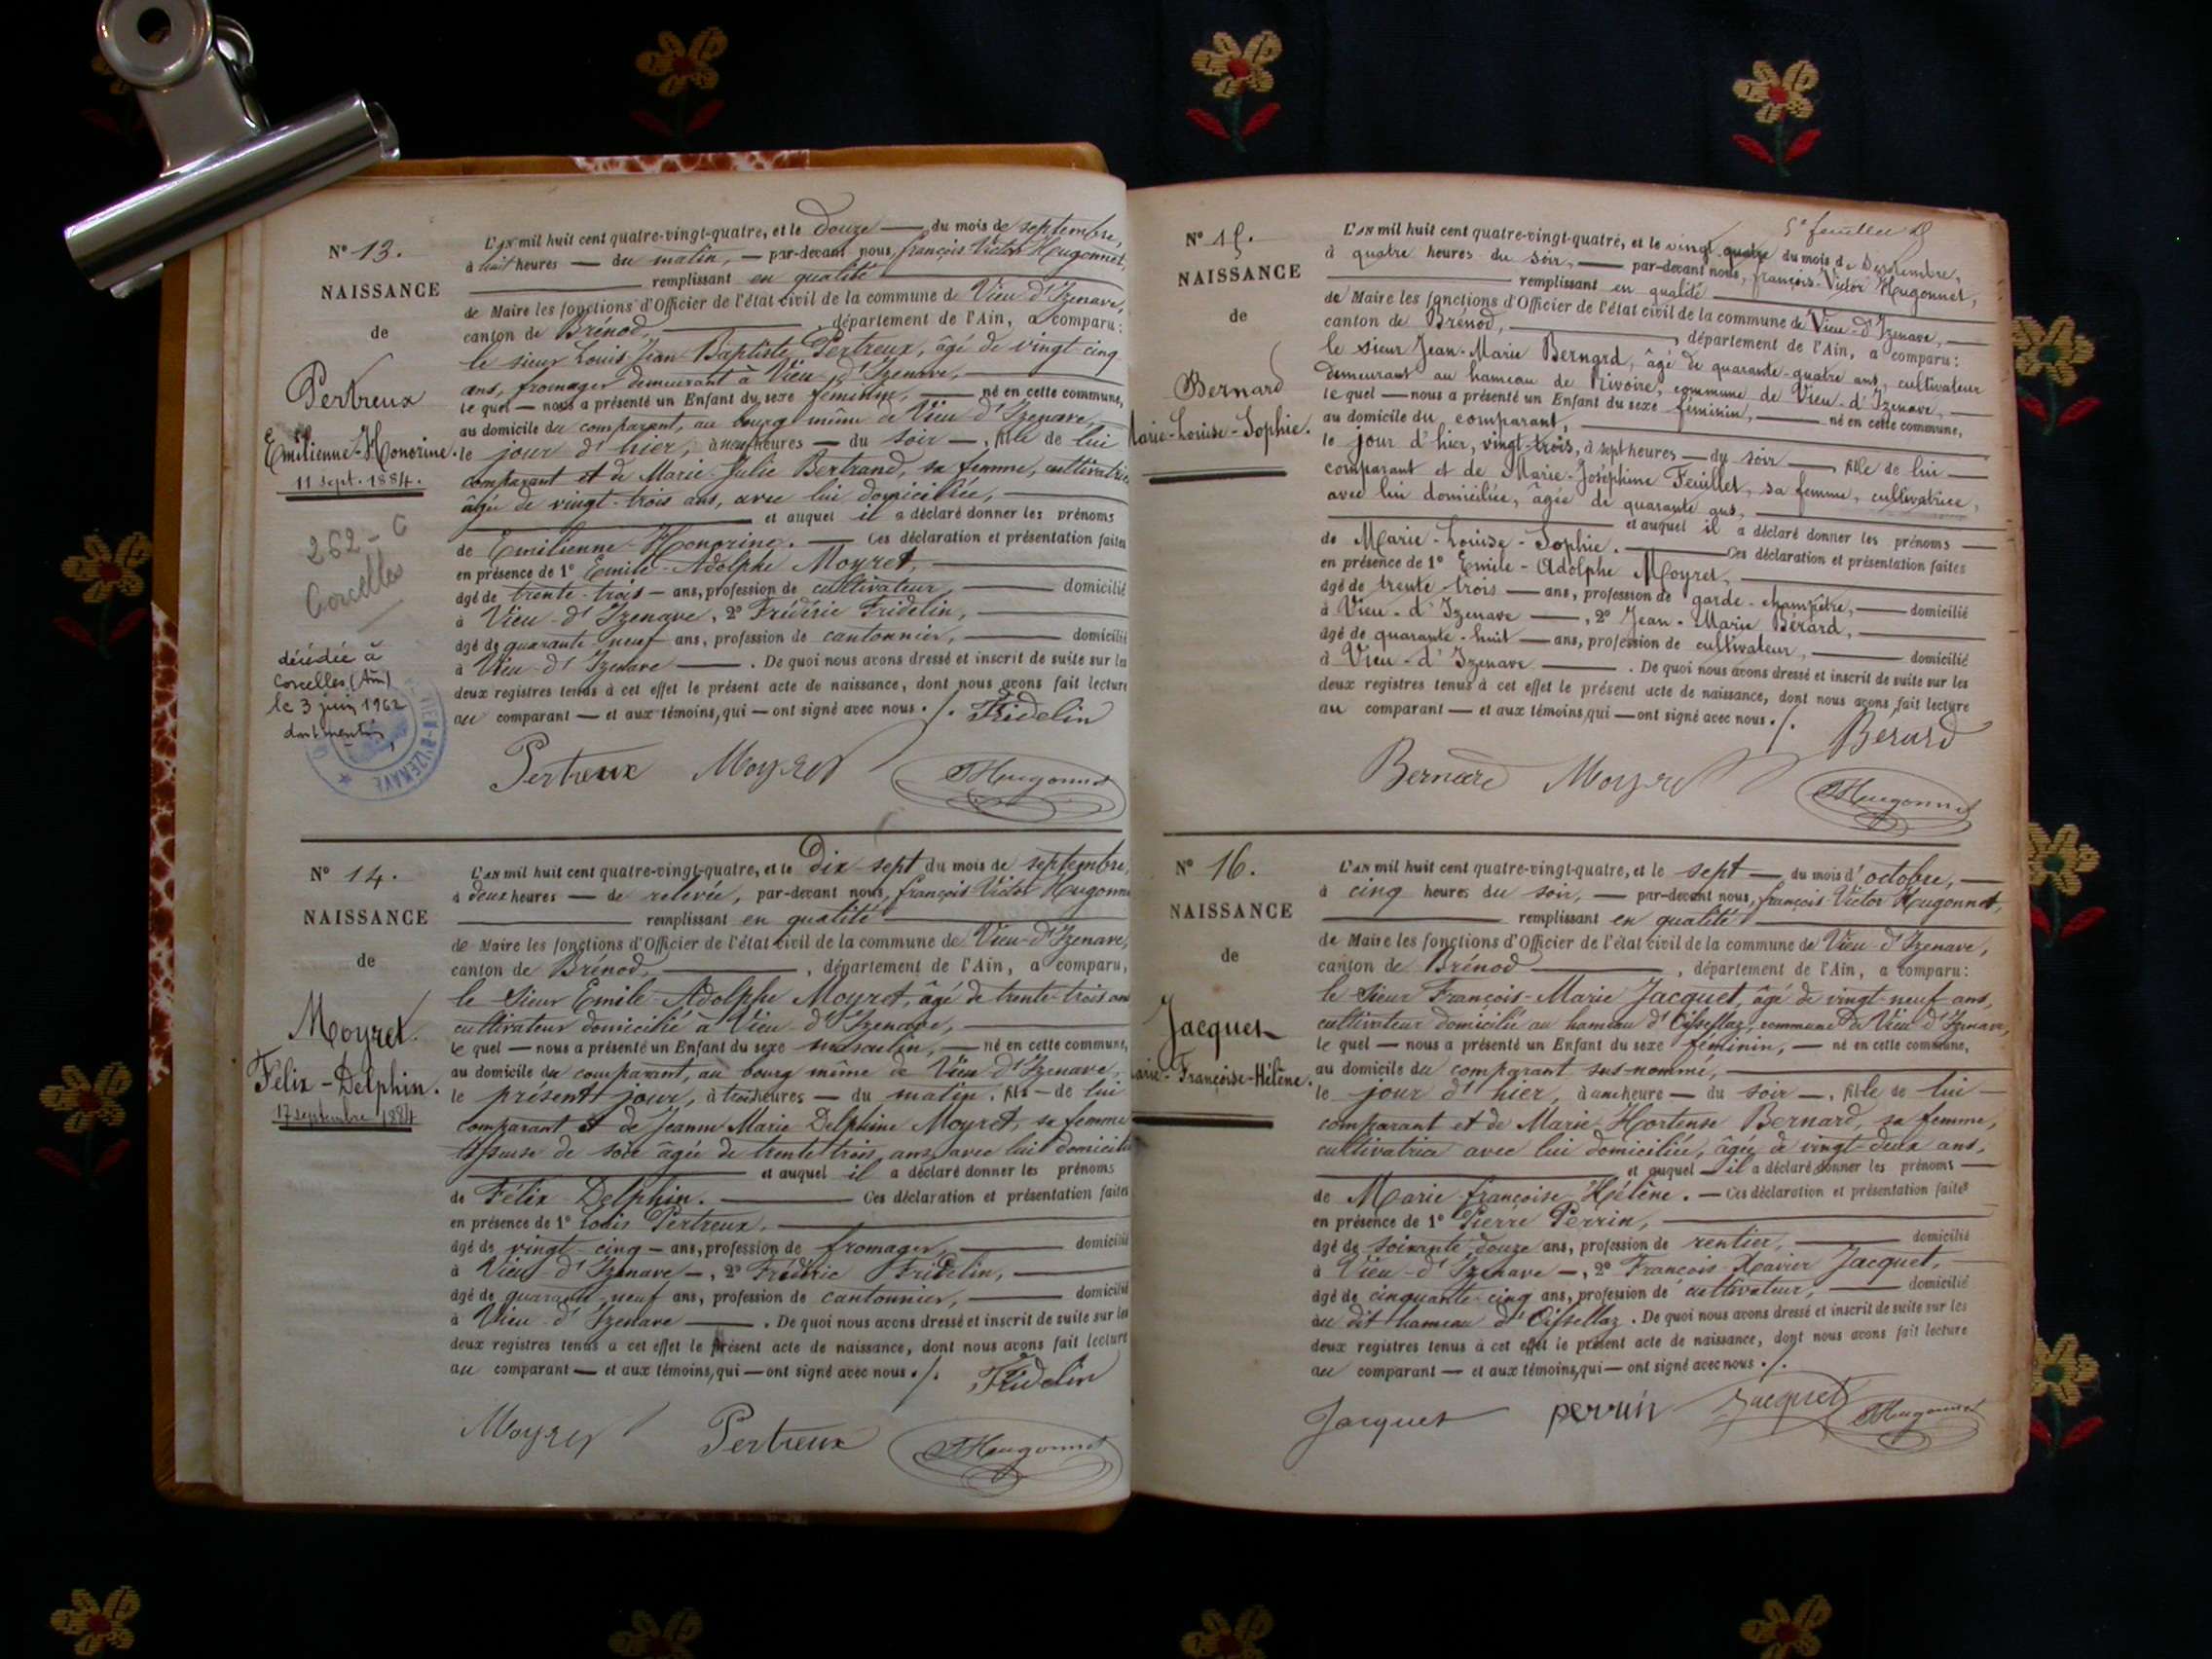 N° 13.
NAISSANCE
de
Pertreux
Emilienne-Honorine.
11 sept. 1884.
262 - C
Corcelles
décédée à
Corcelles (Ain)
le 3 juin 1962
dont mention,
VIEU-D'IZENAVE
L'AN mil huit cent quatre-vingt-quatre, et le Douze — du mois de septembre,
à huit heures — du matin, — par-devant nous, françois Victor Hugonnet,
remplissant en qualité
de Maire les fonctions d'Officier de l'état civil de la commune de Vieu-d'Izenave,
canton de Brénod, — département de l'Ain, a comparu:
le sieur Louis Jean-Baptiste Pertreux, âgé de vingt-cinq
ans, fromager demeurant à Vieu-d'Izenave, —
le quel — nous a présenté un Enfant du sexe féminin, — né en cette commune,
au domicile du comparant, au bourg même de Vieu-d'Izenave,
le jour d'hier, à neuf heures — du soir —, fille de lui
comparant et de Marie-Julie Bertrand, sa femme, cultivatrice
âgée de vingt-trois ans, avec lui domiciliée, —
et auquel il a déclaré donner les prénoms
de Emilienne-Honorine. — Ces déclaration et présentation faites
en présence de 1° Emile-Adolphe Moyret, —
âgé de trente-trois — ans, profession de cultivateur, — domicilié
à Vieu-d'Izenave, 2° Frédéric Fridelin, —
âgé de quarante-neuf ans, profession de cantonnier, — domicilié
à Vieu-d'Izenave — . De quoi nous avons dressé et inscrit de suite sur les
deux registres tenus à cet effet le présent acte de naissance, dont nous avons fait lecture
au comparant — et aux témoins, qui — ont signé avec nous ./. Fridelin
Pertreux Moyret Hugonnet
N° 14.
NAISSANCE
de
Moyret.
Félix-Delphin.
17 septembre 1884
L'AN mil huit cent quatre-vingt-quatre, et le Dix-sept du mois de septembre,
à deux heures — de relevée, par-devant nous, françois Victor Hugonnet
remplissant en qualité
de Maire les fonctions d'Officier de l'état civil de la commune de Vieu-d'Izenave,
canton de Brénod, — , département de l'Ain, a comparu,
le Sieur Emile-Adolphe Moyret, âgé de trente-trois ans
cultivateur domicilié à Vieu-d'Izenave, —
le quel — nous a présenté un Enfant du sexe masculin, — né en cette commune,
au domicile du comparant, au bourg même de Vieu-d'Izenave,
le présent jour, à trois heures — du matin, fils — de lui
comparant et de Jeanne Marie Delphine Moyret, sa femme
tisseuse de soie âgée de trente-trois ans, avec lui domiciliée
et auquel il a déclaré donner les prénoms
de Félix-Delphin. — Ces déclaration et présentation faites
en présence de 1° Louis Pertreux, —
âgé de vingt-cinq — ans, profession de fromager, — domicilié
à Vieu-d'Izenave —, 2° Frédéric Fridelin, —
âgé de quarante-neuf ans, profession de cantonnier, — domicilié
à Vieu-d'Izenave — . De quoi nous avons dressé et inscrit de suite sur les
deux registres tenus à cet effet le présent acte de naissance, dont nous avons fait lecture
au comparant — et aux témoins, qui — ont signé avec nous ./. Fridelin
Moyret Pertreux Hugonnet
5e feuillet
N° 15.
NAISSANCE
de
Bernard
Marie-Louise-Sophie.
L'AN mil huit cent quatre-vingt-quatre, et le vingt-quatre du mois de Septembre,
à quatre heures du soir, — par-devant nous, françois-Victor Hugonnet,
remplissant en qualité
de Maire les fonctions d'Officier de l'état civil de la commune de Vieu-d'Izenave, —
canton de Brénod, — , département de l'Ain, a comparu:
le sieur Jean-Marie Bernard, âgé de quarante-quatre ans, cultivateur
demeurant au hameau de Rivoire, commune de Vieu-d'Izenave, —
le quel — nous a présenté un Enfant du sexe féminin, — né en cette commune,
au domicile du comparant, —
le jour d'hier, vingt-trois, à sept heures — du soir —, fille de lui —
comparant et de Marie-Joséphine Feuillet, sa femme, cultivatrice,
avec lui domiciliée, âgée de quarante ans, —
et auquel il a déclaré donner les prénoms —
de Marie-Louise-Sophie. — Ces déclaration et présentation faites
en présence de 1° Emile-Adolphe Moyret, —
âgé de trente trois — ans, profession de garde-champêtre, — domicilié
à Vieu-d'Izenave —, 2° Jean-Marie Bérard, —
âgé de quarante-huit — ans, profession de cultivateur, — domicilié
à Vieu-d'Izenave — . De quoi nous avons dressé et inscrit de suite sur les
deux registres tenus à cet effet le présent acte de naissance, dont nous avons fait lecture
au comparant — et aux témoins, qui — ont signé avec nous ./. Berard
Bernard Moyret Hugonnet
N° 16.
NAISSANCE
de
Jacquet
Marie-Françoise-Hélène.
L'AN mil huit cent quatre-vingt-quatre, et le sept — du mois d'octobre, —
à cinq heures du soir, — par-devant nous, françois Victor Hugonnet,
remplissant en qualité
de Maire les fonctions d'Officier de l'état civil de la commune de Vieu-d'Izenave,
canton de Brénod — , département de l'Ain, a comparu:
le Sieur François-Marie Jacquet, âgé de vingt-neuf ans,
cultivateur domicilié au hameau d'Oissellaz, commune de Vieu d'Izenave,
le quel — nous a présenté un Enfant du sexe féminin, — né en cette commune,
au domicile du comparant sus-nommé, —
le jour d'hier, à une heure — du soir —, fille de lui —
comparant et de Marie-Hortense Bernard, sa femme,
cultivatrice avec lui domiciliée, âgée de vingt-deux ans,
et auquel il a déclaré donner les prénoms —
de Marie-françoise-Hélène. — Ces déclaration et présentation faites
en présence de 1° Pierre Perrin, —
âgé de soixante-douze ans, profession de rentier, — domicilié
à Vieu-d'Izenave —, 2° François-Xavier Jacquet, —
âgé de cinquante-cinq ans, profession de cultivateur, — domicilié
au dit hameau d'Oissellaz. De quoi nous avons dressé et inscrit de suite sur les
deux registres tenus à cet effet le présent acte de naissance, dont nous avons fait lecture
au comparant — et aux témoins, qui — ont signé avec nous ./.
Jacquet perrin Jacquet Hugonnet